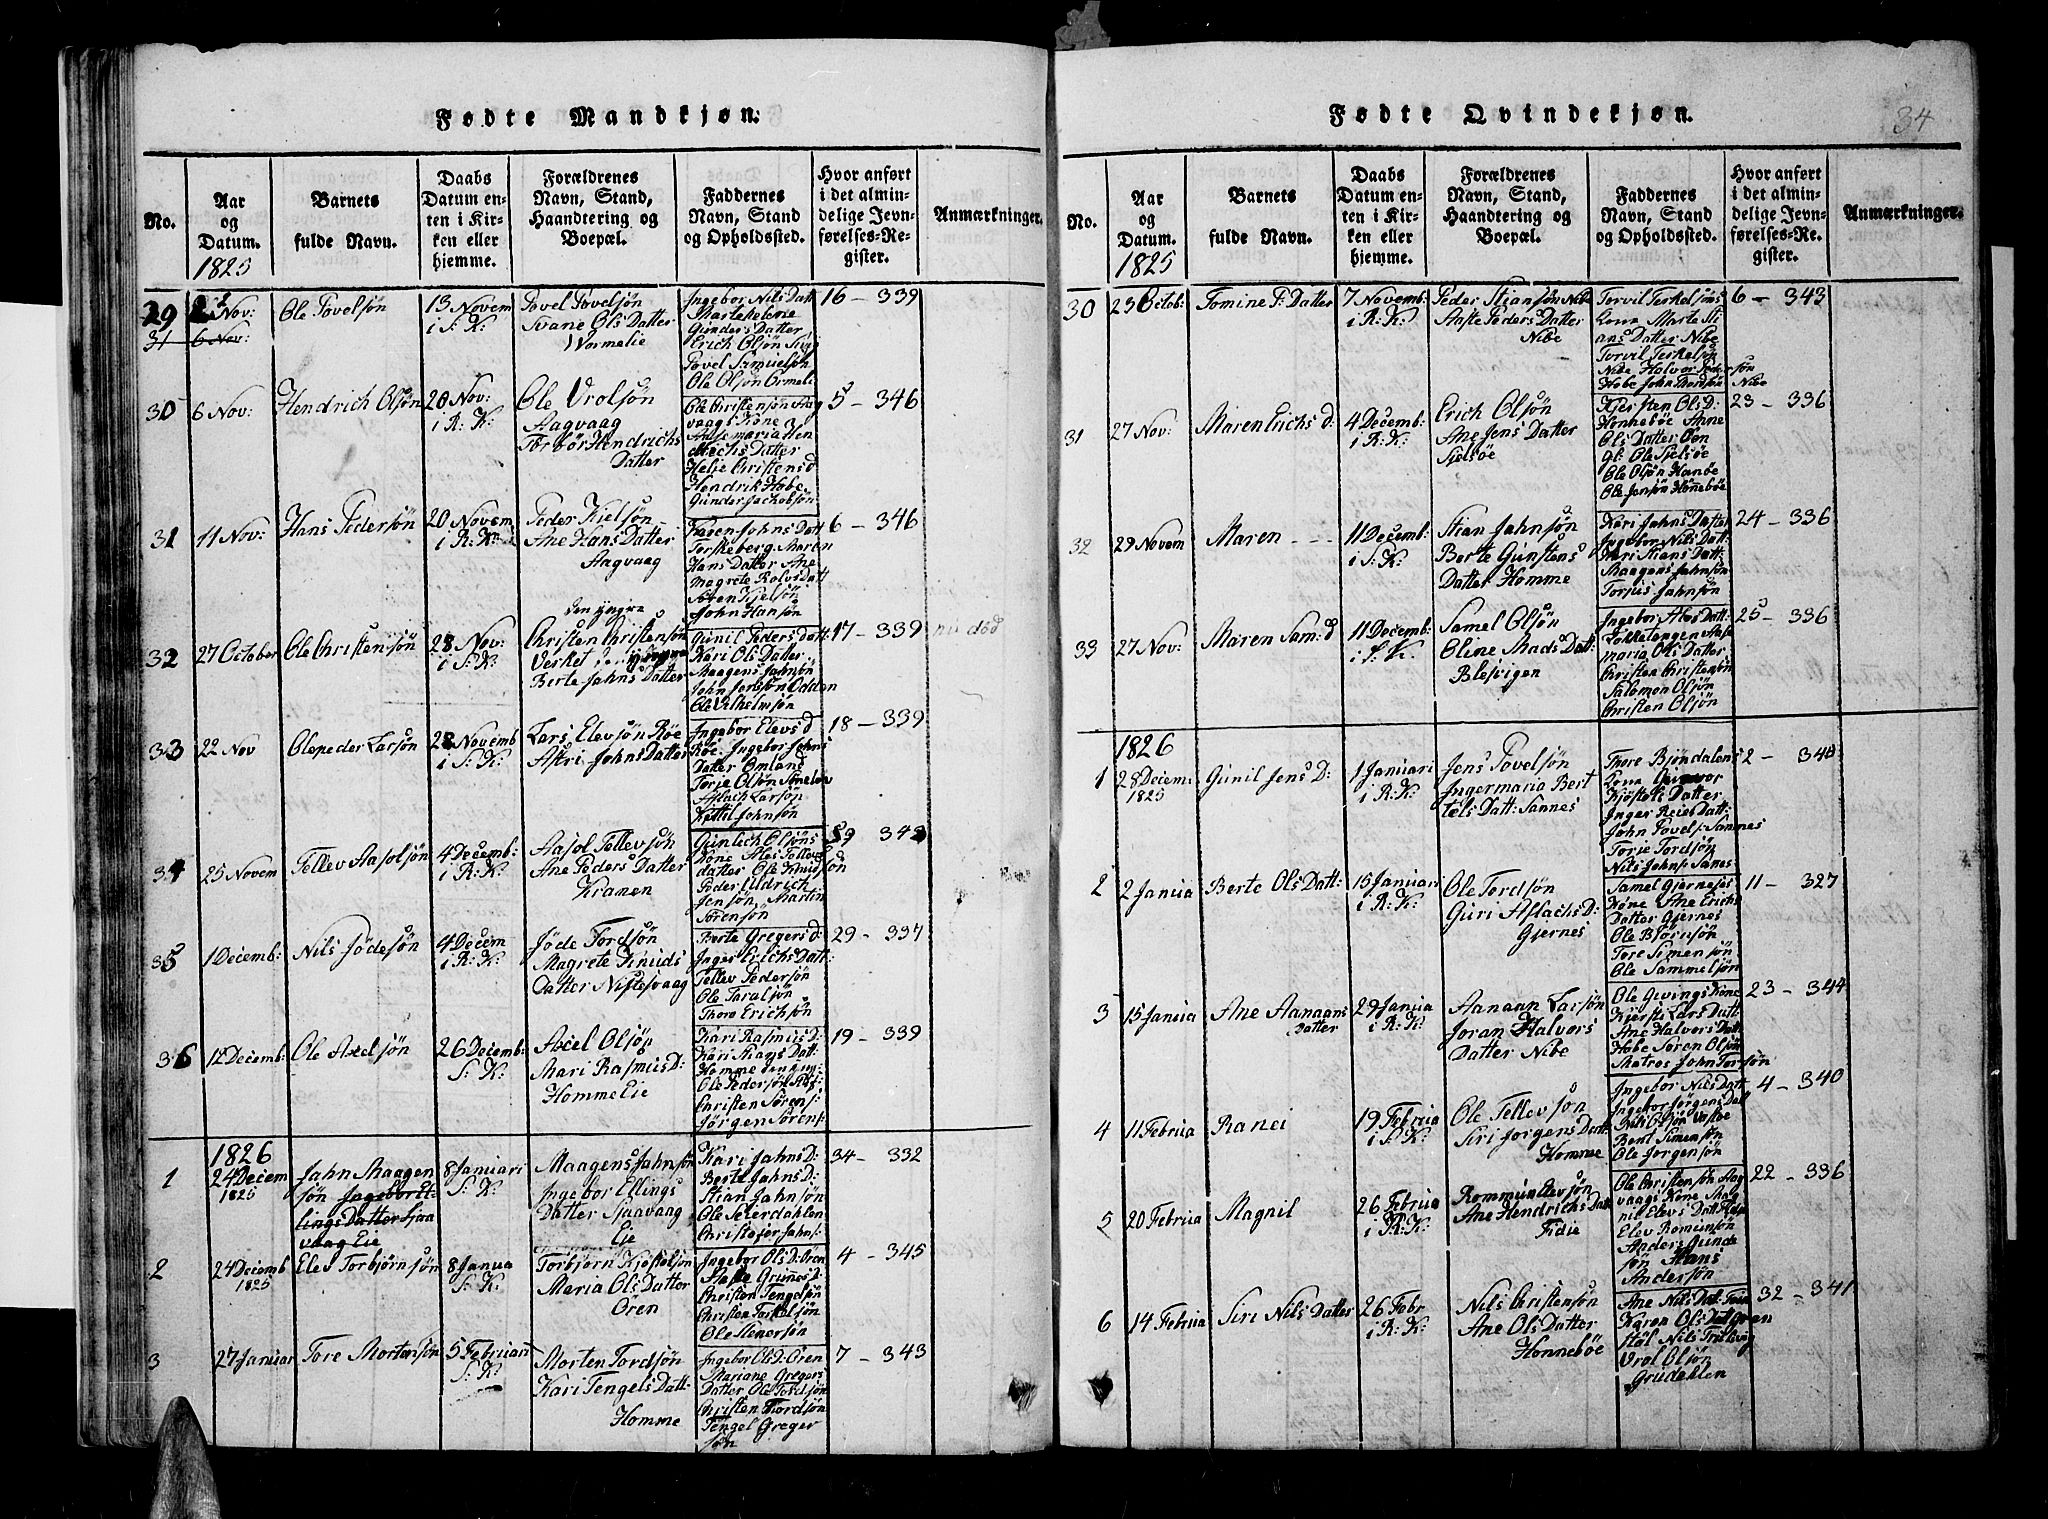 Fødte Mandkjøn.
No.
Aar
og
Datum.
1825
Barnets
fulde Navn.
Daabs
Datum en-
ten i Kir-
ken eller
hjemme.
Forældrenes
Navn, Stand,
Haandtering og
Boepæl.
Faddernes
Navn, Stand
og Opholdssted.
Hvor anført
i det almin-
delige Jevn-
førelses-Re-
gister.
Anmærkninger.
29
Nov:
31
6 Nov:
Ole Povelsøn
13 Novem
i S: K:
Povel Povelsøn
Svane Ols Datter
Wormelie
Ingebor Nils Datt
Martehelene
Gunders Datter
Erich Olsøn
Povel Samuelsøn
Ole Olsøn Ormeli
16 - 339
30
6 Nov:
Hendrich Olsøn
20 Nov:
i R: K:
Ole Vrolsøn
Aagvaag
Torbør Hendrichs
Datter
Ole Christensøn Aag
vaags Kone
Anne maria Hen
drichs Datter
Helje Christens d
Hendrik Hobe
Gunder Jachobsøn
5 - 346
31
11 Nov:
Hans Pedersøn
20 Novem
i R: K:
Peder Kielsøn
Ane Hans Datter
Aagvaag
Karen Johns Datt
Torskeberg Maren
Hans Datter Ane
magrete Rolvs Datt
Søren Kielsøn
John Hansøn
6 - 346
32
27 October
Ole Christensøn
28 Nov:
i S: K:
den yngre
Christen Christensøn
Verket den yngre
Berte Jahns Datter
Gunil Peders datt:
Kari Ols Datter
Maagens Jahnsøn
John Jensøn Odden
Ole Vilhelmsøn
17 - 339
nu død
33
22 Nov
Olepeder Larsøn
28 Novemb
i S: K:
Lars Elevsøn Røe
Astri Johns Datter
Ingebor Elevs d
Røe. Ingebor Johns
Datter Omland
Torje Olsøn
Aslach Larsøn
Kittil Johnsøn
18 - 339
34
25 Novem
Tellev Aasolsøn
4 Decemb:
i R: K:
Aasol Tellevsøn
Ane Peders Datter
Kramen
Gunlech Olsøns
Kone Ales Tellevs
datter Ole Knudsøn
Peder Uldrich
Jensøn, Martin
Sørensøn
35
1 Decemb:
Nils Jødesøn
4 Decem
i R: K:
Jøde Tordsøn
Magrete Knuds
Datter Nistesvaag
Berte Gregers d:
Inger Erichs Datt:
Tellev Pedersøn
Ole Taralsøn
Thore Erichsøn
29 - 337
36
12 Decemb:
Ole Axelsøn
26 Decemb:
S: K:
Axel Olsøn
Mari Rasmus D:
Homme Eie
Kari Rasmus D:
Kari Hans Datt:
Homme
Ole Pedersøn
Christen Sørens:
Jørgen Sørens:
19 - 339
1826
1
24 Decem
1825
Jahn Maagen
søn Ingebor El-
lings Datter Sjaa
vaag Eie
8 Januari
S: K:
Maagens Jahnsøn
Ingebor Ellings
Datter Sjaavaag
Eie
Kari Jahns D:
Berte Jahns D:
Stian Jahnsøn
Ole Seierdahlen
Christofer Jahns:
34 - 332
2
24 Decemb
1825
Elev Torbjørnsøn
8 Janua
S: K:
Torbjørn Kjøstelsøn
Maria Ols Datter
Ören
Ingebor Ols D: Ören
Aaste Grunnes D:
Christen Tengelsøn
Christen Torkelsøn
Ole Stenersøn
4 - 345
3
27 Januar
Tore Mortensøn
5 Februari
S: K:
Morten Tordsøn
Kari Tengels Datt:
Homme
Ingebor Ols D: Ören
Mariane Gregers
Datter Ole Tordsøn
Christen Tordsøn
Tengel Greger
søn
7 - 343
Fødte Qvindekjøn.
34
No.
Aar
og
Datum.
1825
Barnets
fulde Navn.
Daabs
Datum en-
ten i Kir-
ken eller
hjemme.
Forældrenes
Navn, Stand,
Haandtering og
Boepæl.
Faddernes
Navn, Stand
og Opholdssted.
Hvor anført
i det almin-
delige Jevn-
førelses-Re.
gister.
Anmærkninger.
30
23 Octob:
Tomine P: Datter
7 Novemb:
i R: K:
Peder Stiansøn Nibe
Aaste Peders Datter
Nibe
Torvil Terkelsøns
Kone Marte Sti
ans Datter Nibe
Torvil Terkelsøn
Nibe Halvor Pedersøn
Hobe John Tordsøn Nibe
6 - 343
31
27 Nov:
Maren Erichs d:
4 Decemb:
i R: K:
Erich Olsøn
Ane Jens Datter
Sjelsøe
Kjersten Ols D:
Honnebøe Anne
Ols Datter Oen
gl: Ole Sjelsøe
Ole Olsøn Hanøe
Ole Jensøn Hønnebøe
23 - 336
32
29 Novem
Maren - - -
11 Decemb:
i S: K:
Stian Jahnsøn
Berte Gunstens
Datter Homme
Kari Jahns Datter
Ingebor Nils Datt:
Kari Stians Datt:
Maagens Jahnsøn
Torjus Jahnsøn
24 - 336
33
27 Nov:
Maren Sam: d
11 Decemb:
i S: K:
Samel Olsøn
Oline Mads Datt:
Blesvigen
Ingebor Abos Datt:
Lokketangen Anne
maria Ols Datter
Christen Christensøn
Salomon Olsøn
Christen Olsøn
25 - 336
1826
1
28 Decem:
1825
Gunil Jens D:
1 Januari
i R: K:
Jens Povelsøn
Ingermaria Bert
tels Datt: Sannes
Thore Bjøndalens
Kone Gunvor
Kjøstels Datter
Inger Reies Datt:
John Povels: Sannes
Torje Tordsøn
Nils Johns: Sanes
2 - 340
2
2 Janua
Berte Ols Datt:
15 Januari
i R: K:
Ole Tordsøn
Guri Aslachs D:
Gjernes
Samel Gjerneses
Kone Ane Erichs
Datter Gjernes
Ole Bjørnsøn
Tore Simensøn
Ole Sammelsøn
11 - 327
3
15 Janua
Ane Aanans
Datter
29 Janua
i R: K:
Aanaan Larsøn
Joran Halvors
Datter Nibe
Ole Givings Kone
Kjersti Lars Datt:
Ane Halvors Datt:
Hobe Søren Olsøn
Matros John Torsøn
23 - 344
4
11 Februa
Ranei
19 Februa
i S: K:
Ole Tellevsøn
Siri Jørgens Datt:
Homme
Ingebor Nils Datt
Ingebor Jørgens Datt
Nils Olsøn Vasbøe
Bent Simensøn
Ole Jørgensøn
4 - 340
5
20 Februa
Magnil
26 Februa
i R: K:
Rommun Elevsøn
Ane Hendrichs Datt
Fidie
Ole Christensøn Aag
vaags Kone Mag
nil Elevs Datt
Elev Romunsøn
Anders Gunde
søn Hans
Andersøn
22 - 336
6
14 Februa
Siri Nils Datter
26 Febr
i R: K:
Nils Christensøn
Ane Ols Datter
Honnebøe
Ane Nils Datt:
Karen Ols Datt Gran
støl Nils Trulsvig
Vrol Olsøn
Grudahlen
32 - 341